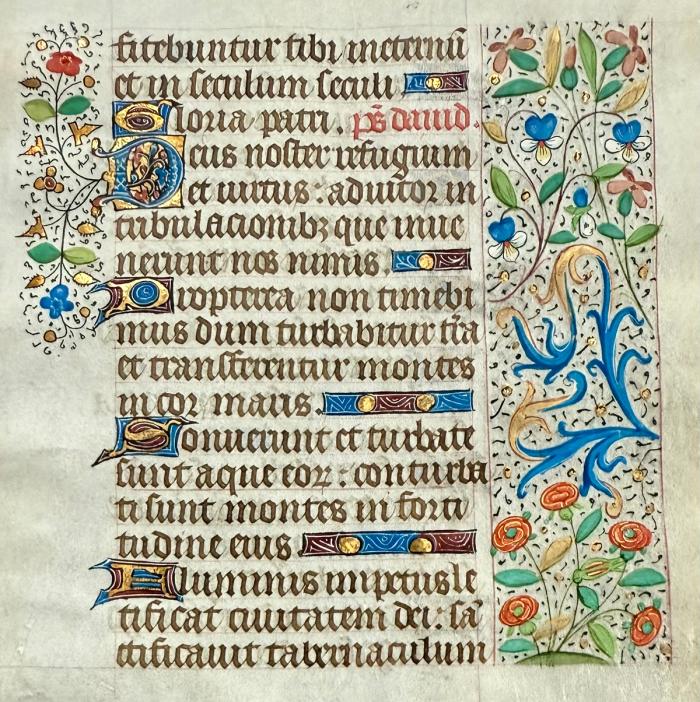 fitebuntur tibi ineternū
et in seculum seculi
Gloria patri. ps̄ dauid.
Deus noster refugium
et uirtus : adiutor in
tribulacionibꝫ que inue
nerunt nos nimis.
Propterea non timebi
mus dum turbabitur tr̄a
et transferentur montes
in cor maris.
Sonuerunt et turbate
sunt aque eoꝝ : conturba
ti sunt montes in forti
tudine eius
Fluminis impetus le
tificat ciuitatem dei : sā
ctificauit tabernaculum